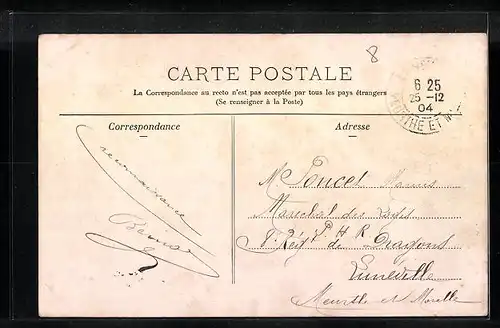 8
CARTE POSTALE
La Correspondance au recto n'est pas acceptée par tous les pays étrangers
(Se renseigner à la Poste)
6 25
25 -12
04
MEURTHE ET M
Correspondance
Adresse
reconnaissance
M. Poncet
Marechal des Logis
Régt de Dragons
Luneville
Meurthe et Moselle